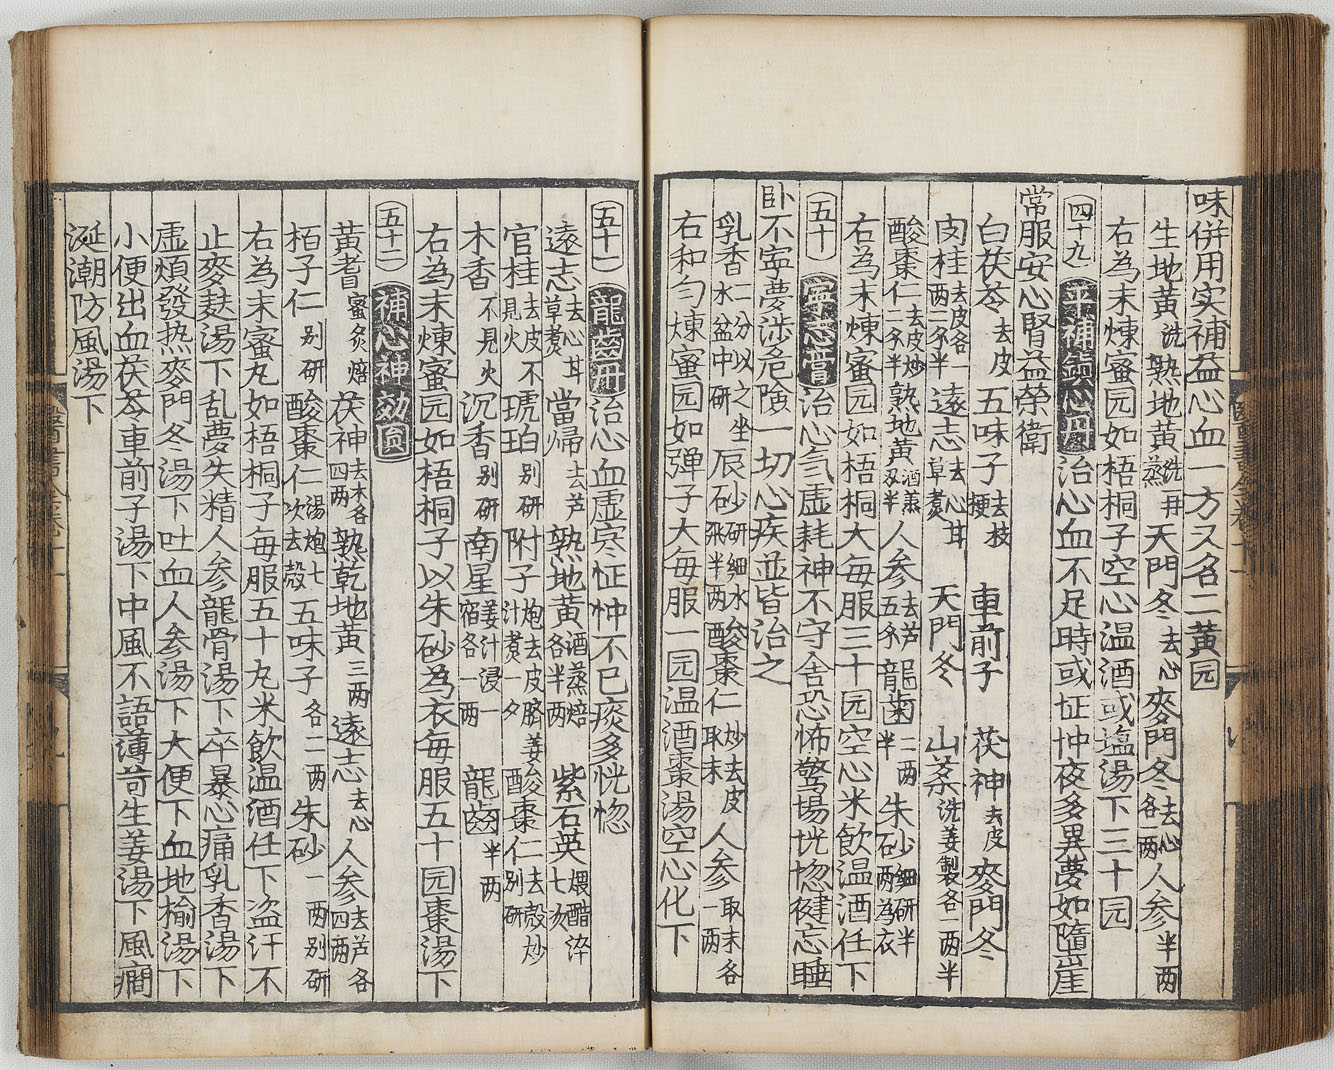 味併用实補益心血一方又名二黃园
生地黃洗 熟地黃洗再蒸 天門冬去心 麥門冬去心各一两 人参半两
右為末煉蜜园如梧桐子空心温酒或塩湯下三十园
四十九 平補鎮心丹 治心血不足時或怔忡夜多異夢如隨崖
常服安心腎益榮衛
白茯苓去皮 五味子去枝梗 車前子 茯神去皮 麥門冬
肉桂去皮各一两二分半 遠志去心草煮 天門冬 山茱洗姜製各一两半
酸棗仁去皮炒二分半 熟地黃酒蒸 人参去芦五分 龍齒二两半 朱砂細研半两為衣
右為末煉蜜园如梧桐大每服三十园空心米飲温酒任下
五十 寧志膏 治心氣虛耗神不守舍恐怖驚惕恍惚健忘睡
卧不寧夢涉危險一切心疾並皆治之
乳香一分以水盆中研之坐 辰砂研細水飛半两 酸棗仁炒去皮取末 人参取末各一两
右和勻煉蜜园如弹子大每服一园温酒棗湯空心化下
五十一 龍齒丹 治心血虛寒怔忡不已痰多恍惚
遠志去心草煮 當歸去芦 熟地黃酒蒸焙各半两 紫石英煨醋淬七次
官桂去皮不見火 琥珀别研 附子炮去皮臍姜汁煮一夕 酸棗仁去殼炒别研
木香不見火 沉香别研 南星姜汁浸一宿各一两 龍齒半两
右為末煉蜜园如梧桐子以朱砂為衣每服五十园棗湯下
五十二 補心神効圓
黃耆蜜炙焙 茯神去木各四两 熟乾地黃三两 遠志去心 人参去芦各四两
栢子仁别研 酸棗仁湯炮七次去殼 五味子各二两 朱砂一两别研
右為末蜜丸如梧桐子每服五十丸米飲温酒任下盗汗不
止麥麩湯下乱夢失精人参龍骨湯下卒暴心痛乳香湯下
虛煩發热麥門冬湯下吐血人参湯下大便下血地榆湯下
小便出血茯苓車前子湯下中風不語薄苛生姜湯下風癇
涎潮防風湯下